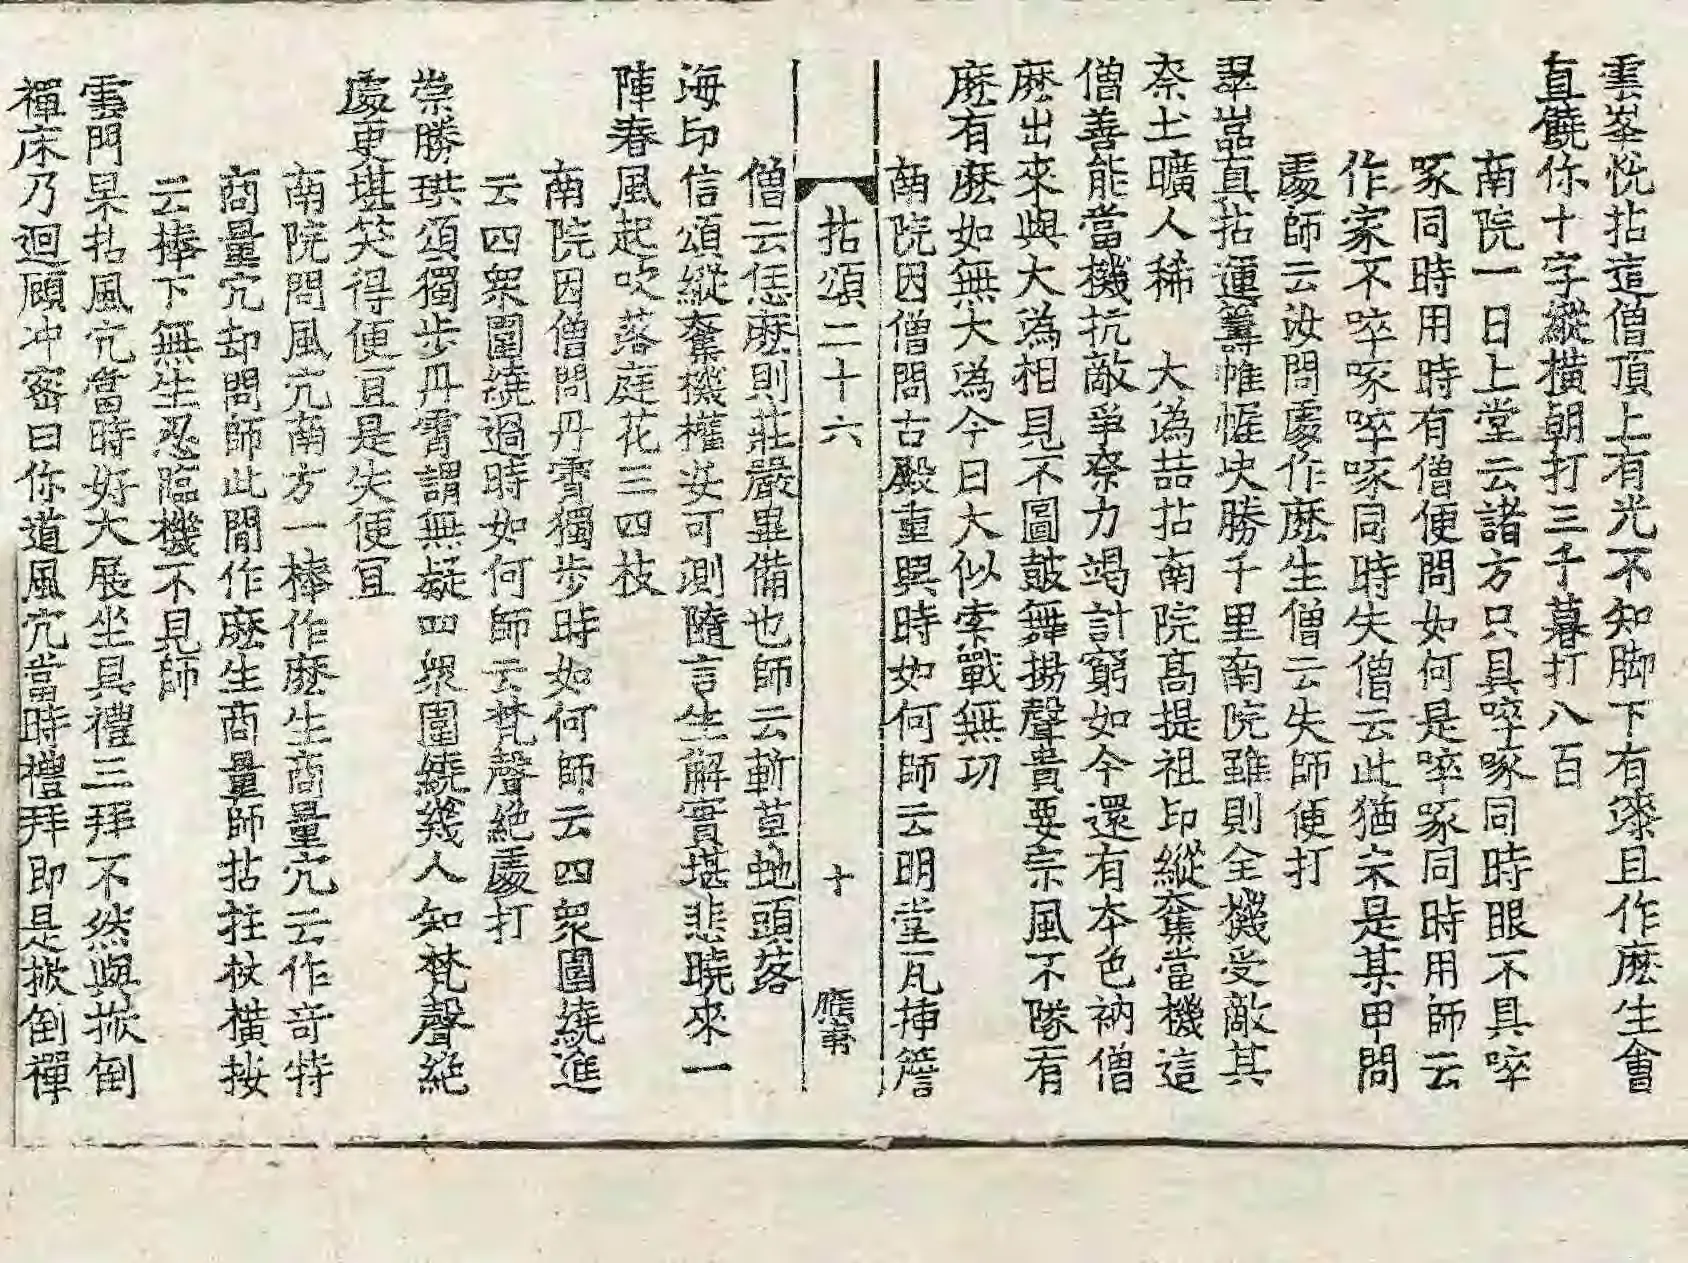 雲峯悅拈這僧頂上有光不知脚下有㯃且作麽生會
直饒你十字縱橫朝打三千暮打八百
南院一日上堂云諸方只具啐啄同時眼不具啐
啄同時用時有僧便問如何是啐啄同時用師云
作家不啐啄啐啄同時失僧云此猶未是某甲問
處師云汝問處作麽生僧云失師便打
翠嵓真拈運籌帷幄决勝千里南院雖則全機受敵其
奈土曠人稀 大潙喆拈南院髙提祖印縱奪當機這
僧善能當機抗敵爭奈力竭計窮如今還有本色衲僧
麽出來與大潙相見不圖鼓舞揚聲貴要宗風不墜有
麽有麽如無大潙今日大似索戰無功
南院因僧問古殿重興時如何師云明堂瓦揷簷
拈頌二十六 十
僧云恁麽則莊嚴畢備也師云斬草虵頭落
海印信頌縱奪機權安可測隨言生解實堪悲曉來一
陣春風起吹落庭花三四枝
南院因僧問丹霄獨步時如何師云四衆圍繞進
云四衆圍繞過時如何師云梵聲絶處打
崇勝珙頌獨步丹霄謂無疑四衆圍繞幾人知梵聲絶
處更堪笑得便冝是失便冝
南院問風穴南方一棒作麽生商量穴云作竒特
商量穴却問師此間作麽生商量師拈拄杖橫按
云棒下無生忍臨機不見師
雲門杲拈風穴當時好大展坐具禮三拜不然與掀倒
禪床乃迴顧冲密曰你道風穴當時禮拜即是掀倒禪